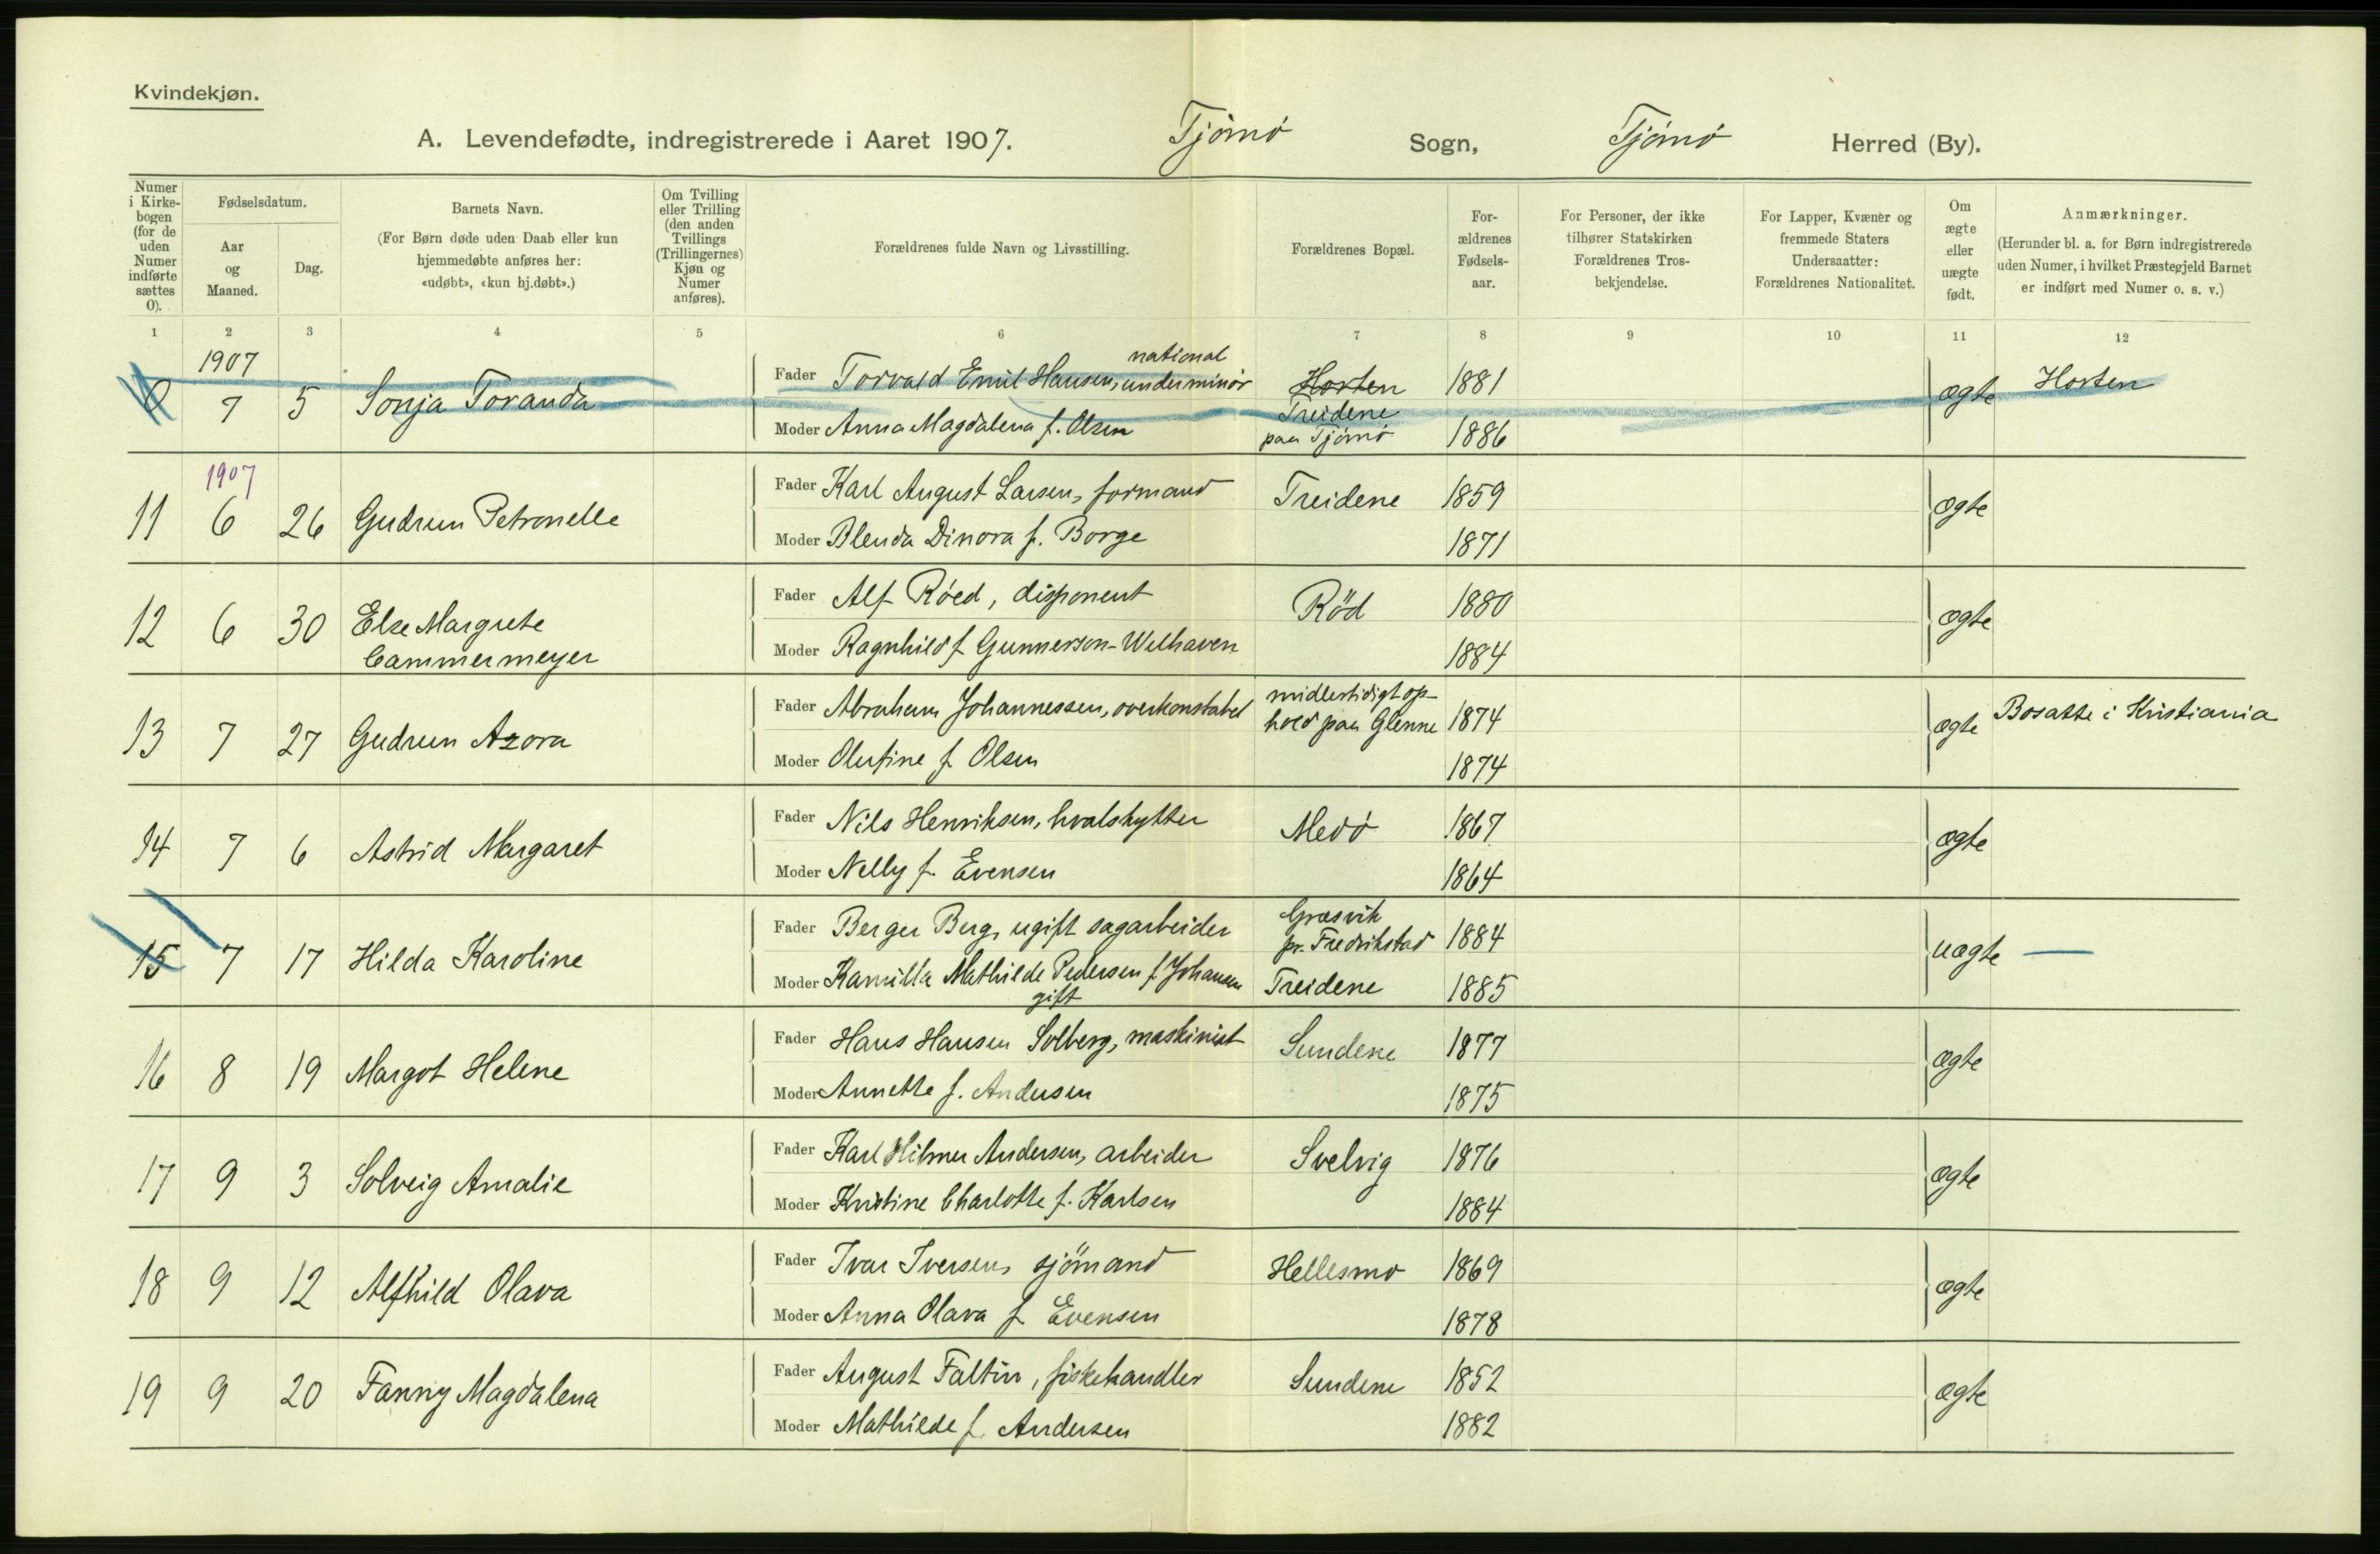 Kvindekjøn.
A. Levendefødte, indregistrerede i Aaret 1907. Tjömö Sogn, Tjömö Herred (By).
Numer i Kirke-bogen (for de uden Numer indførte sættes 0).
Fødselsdatum.
Aar og Maaned.
Dag.
Barnets Navn.
(For Børn døde uden Daab eller kun hjemmedøbte anføres her: «udøbt», «kun hj.døbt».)
Om Tvilling eller Trilling (den anden Tvillings (Trillingernes) Kjøn og Numer anføres).
Forældrenes fulde Navn og Livsstilling.
Forældrenes Bopæl.
For-ældrenes Fødsels-aar.
For Personer, der ikke tilhører Statskirken Forældrenes Tros-bekjendelse.
For Lapper, Kvæner og fremmede Staters Undersaatter: Forældrenes Nationalitet.
Om ægte eller uægte født.
Anmærkninger.
(Herunder bl. a. for Børn indregistrerede uden Numer, i hvilket Præstegjeld Barnet er indført med Numer o. s. v.)
1 2 3 4 5 6 7 8 9 10 11 12
1907 national
0 7 5 Sonja Toranda Fader Torvald Emil Hansen, underminör Horten 1881 ægte Horten
Moder Anna Magdalena f. Olsen Treidene paa Tjömö 1886
1907
11 6 26 Gudrun Petronelle Fader Karl August Larsen, formand Treidene 1859 ægte
Moder Blenda Dinora f. Borge 1871
12 6 30 Else Margrete Cammermeyer Fader Alf Röed, disponent Röd 1880 ægte
Moder Ragnhild f Gunnerson-Welhaven 1884
13 7 27 Gudrun Azora Fader Abraham Johannessen, overkonstabel midlertidigt op-hold paa Glenne 1874 ægte Bosatte i Kristiania
Moder Olufine f Olsen 1874
14 7 6 Astrid Margaret Fader Nils Henriksen, hvalskytter Medö 1867 ægte
Moder Nelly f. Evensen 1864
15 7 17 Hilda Karoline Fader Berger Berg, ugift sagarbeider Græsvik pr. Fredrikstad 1884 uægte —
Moder Kamilla Mathilde Pedersen f. Johansen gift Treidene 1885
16 8 19 Margot Helene Fader Hans Hansen Solberg, maskinist Sundene 1877 ægte
Moder Annette f. Andersen 1875
17 9 3 Solveig Amalie Fader Karl Hilmer Andersen, arbeider Svelvig 1876 ægte
Moder Kristine Charlotte f. Karlsen 1884
18 9 12 Alfhild Olava Fader Ivar Iversen, sjömand Hellesmo 1869 ægte
Moder Anna Olava f Evensen 1878
19 9 20 Fanny Magdalena Fader August Faltin, fiskehandler Sundene 1852 ægte
Moder Mathilde f. Andersen 1882